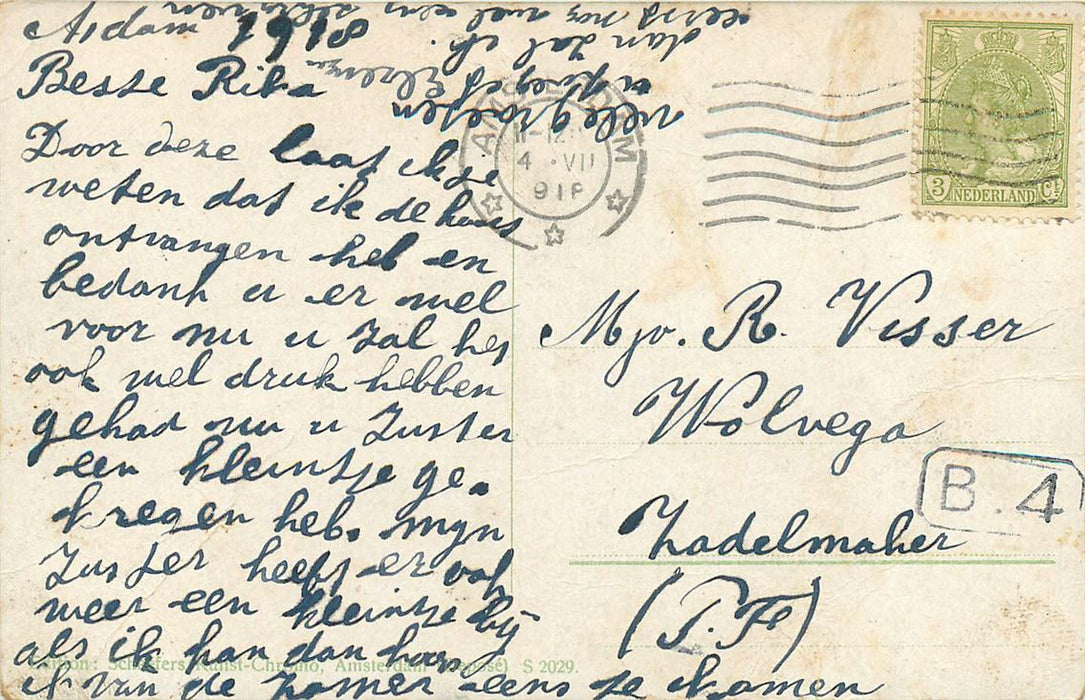 A,dam 1918
Besse Rika
Door deze laat ik je
weten dat ik de kaart
ontvangen heb en
bedank u er wel
voor nu u zal het
ook wel druk hebben
gehad nu u Zuster
een kleintje ge.
kregen heb. mijn
Zuster heeft er ook
weer een kleintje bij
als ik kan dan hoor
ik van de zomer eens te komen
dan zal ik
eerst nog wel een
vele groeten
AMSTERDAM
4 .VII
918
3 NEDERLAND Ct
Mej. R. Visser
Wolvega
Zadelmaker
(P. Fr)
B.4
Edition: Schaefers Kunst-Chromo, Amsterdam (Deposé) S 2029.